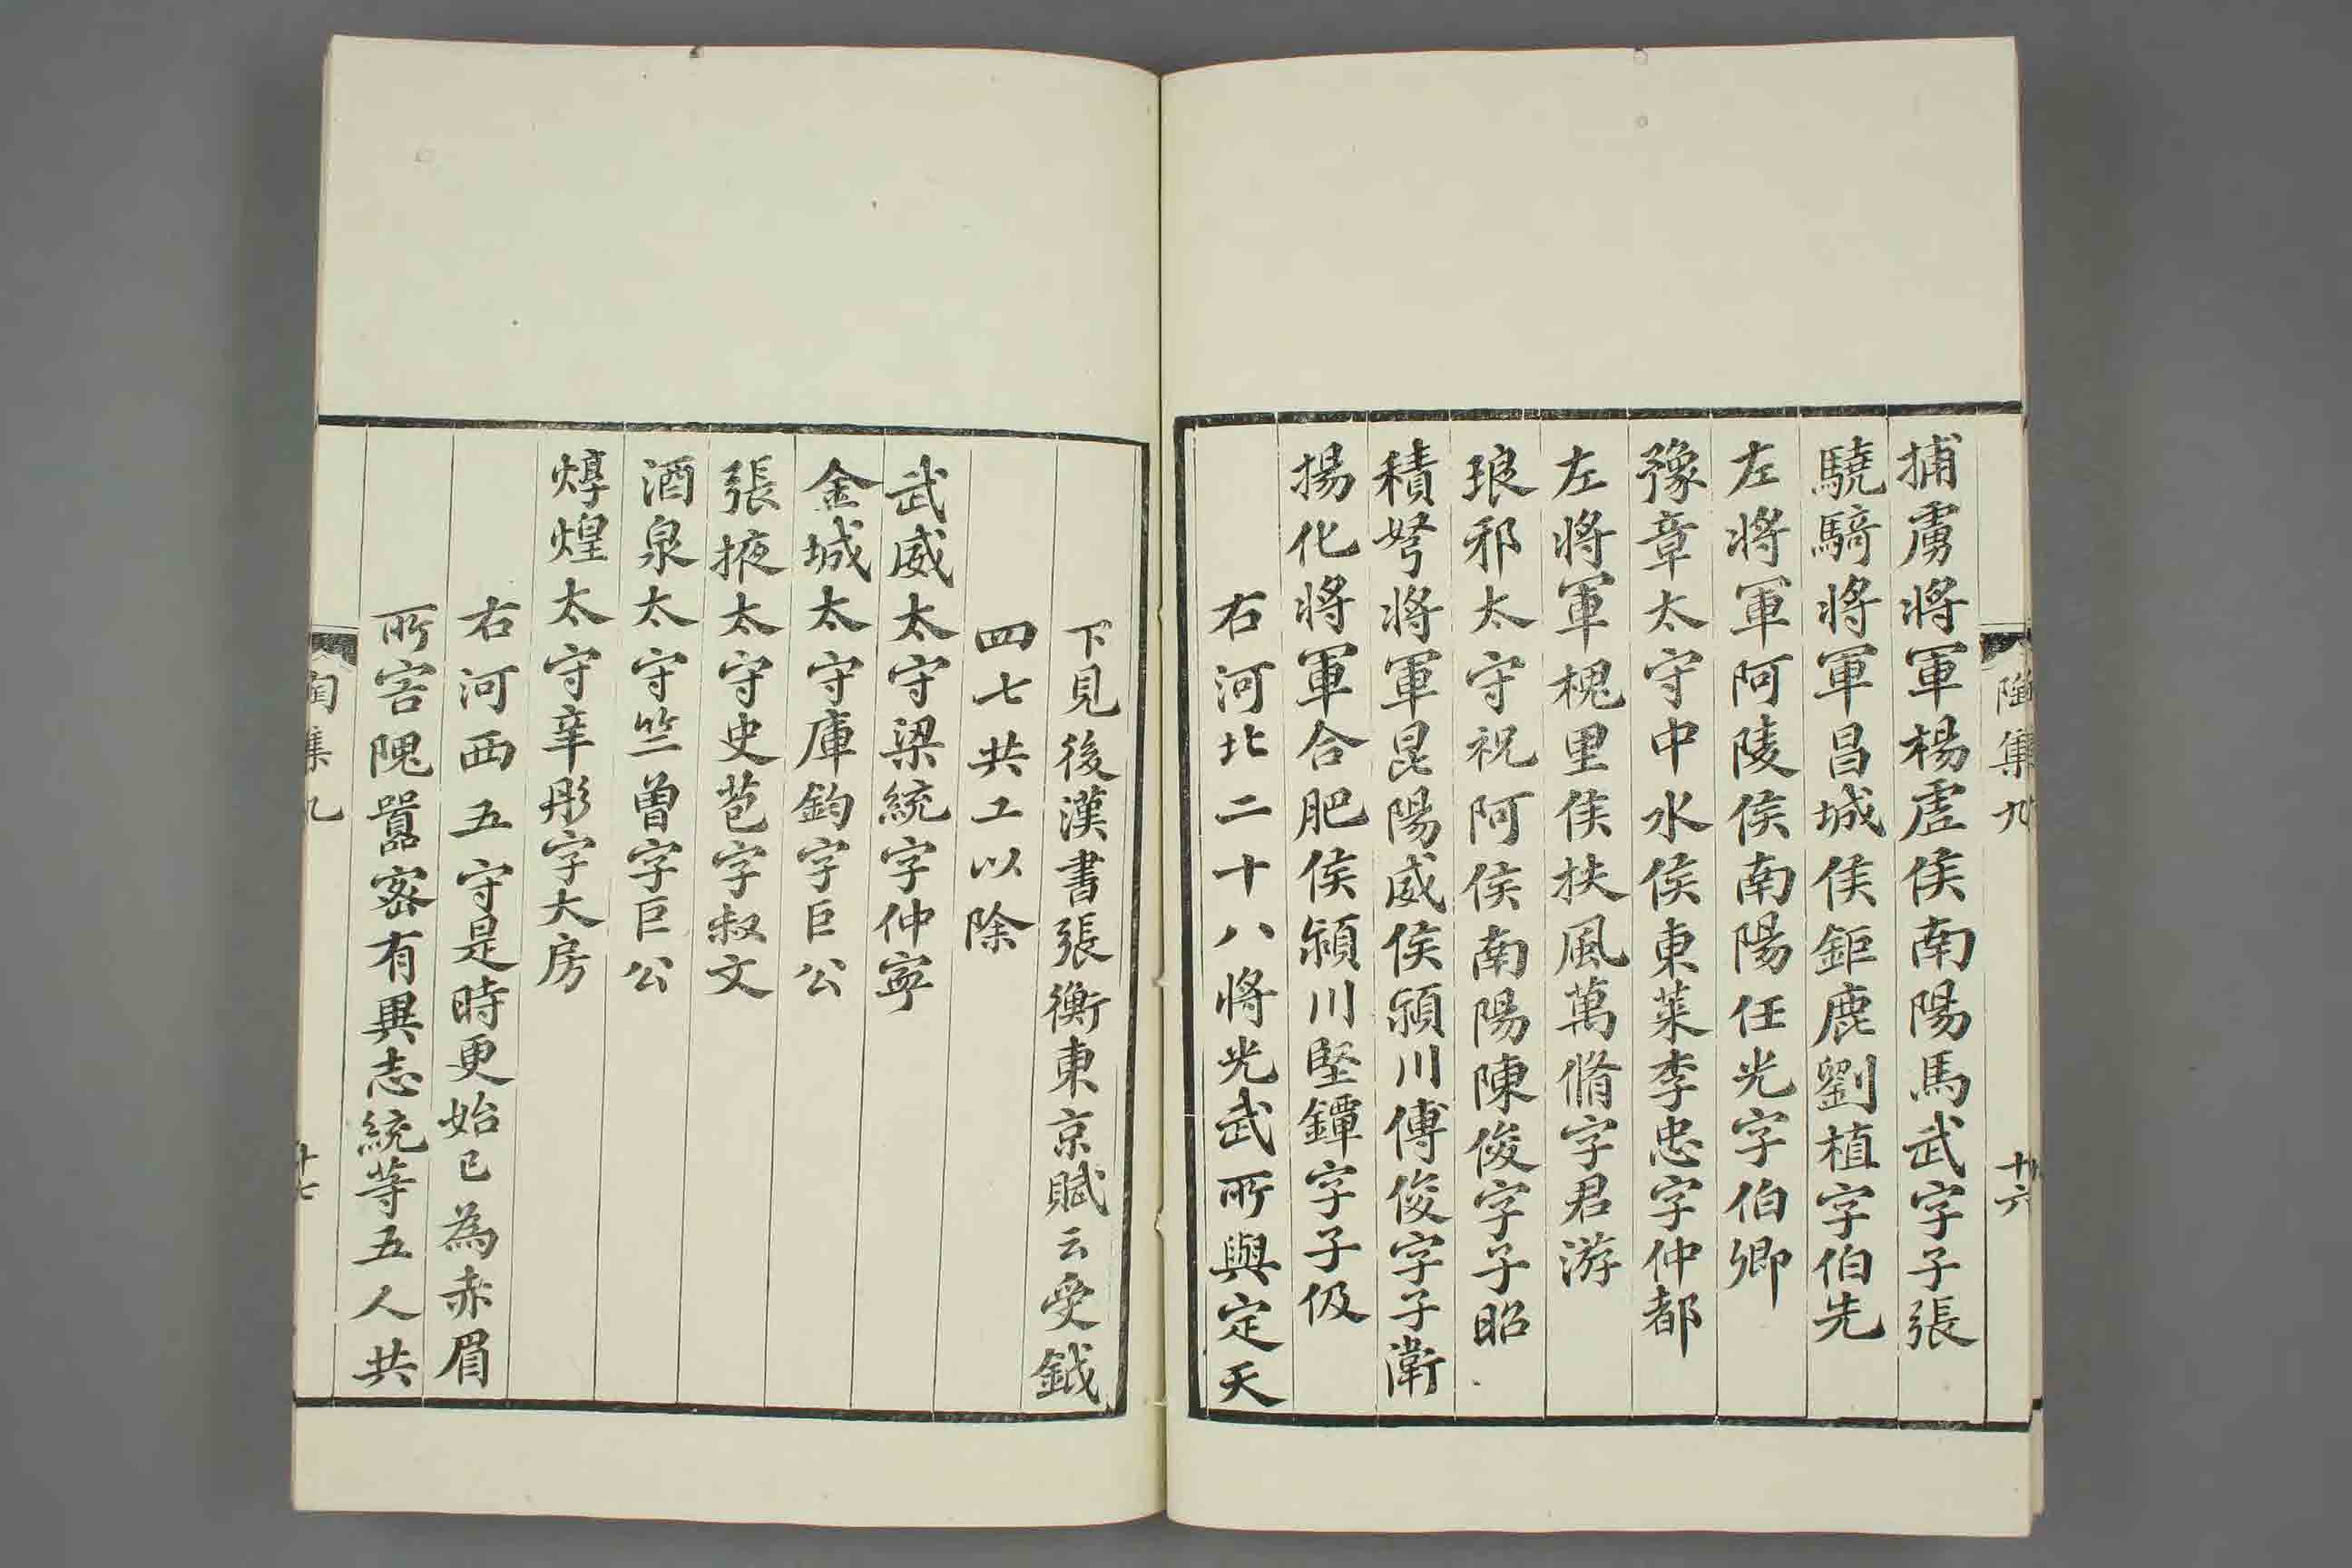 陶集九
十六
捕虜將軍楊虛侯南陽馬武字子張
驍騎將軍昌城侯鉅鹿劉植字伯先
左將軍阿陵侯南陽任光字伯卿
豫章太守中水侯東萊李忠字仲都
左將軍槐里侯扶風萬脩字君游
琅邪太守祝阿侯南陽陳俊字子昭
積弩將軍昆陽威侯潁川傅俊字子衛
揚化將軍合肥侯潁川堅鐔字子伋
右河北二十八將光武所與定天
下見後漢書張衡東京賦云受鉞
四七共工以除
武威太守梁統字仲寧
金城太守庫鈞字巨公
張掖太守史苞字叔文
酒泉太守竺曾字巨公
燉煌太守辛肜字大房
右河西五守是時更始已為赤眉
所害隗囂密有異志統等五人共
陶集九
十七